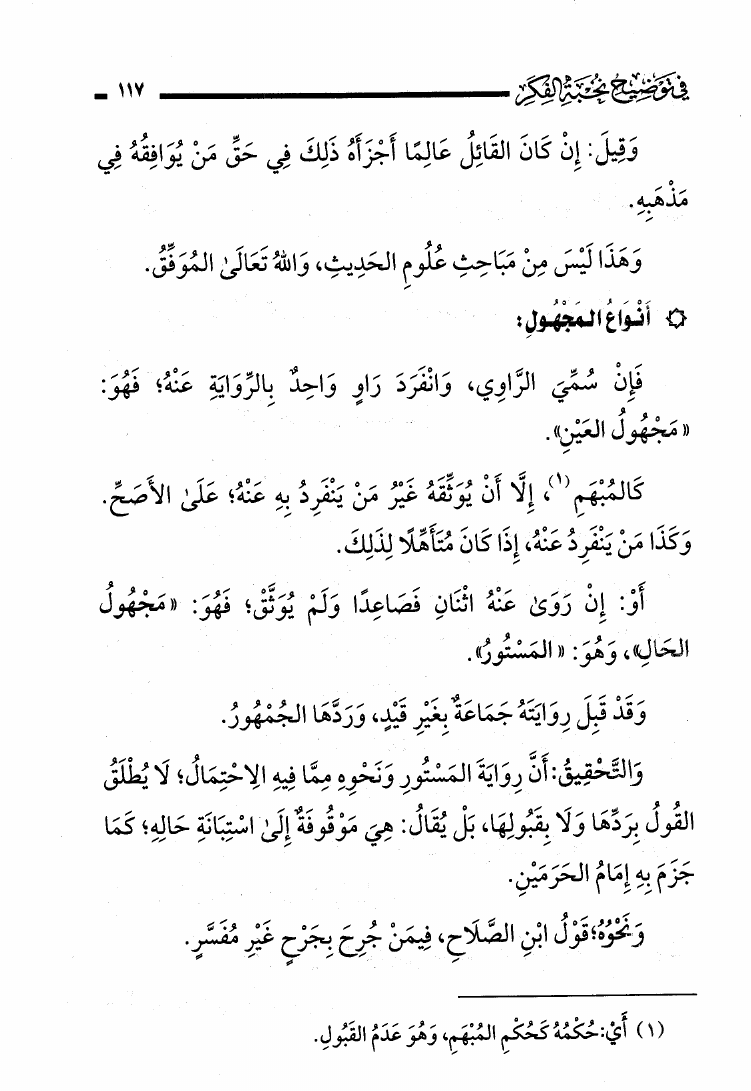 في توضيح نخبة الفكر ١١٧
وَقِيلَ: إِنْ كَانَ القَائِلُ عَالِمًا أَجْزَأَهُ ذَلِكَ فِي حَقِّ مَنْ يُوَافِقُهُ فِي
مَذْهَبِهِ.
وَهَذَا لَيْسَ مِنْ مَبَاحِثِ عُلُومِ الحَدِيثِ، وَاللهُ تَعَالَىٰ المُوَفِّقُ.
۞ أَنْوَاعُ المَجْهُولِ:
فَإِنْ سُمِّيَ الرَّاوِي، وَانْفَرَدَ رَاوٍ وَاحِدٌ بِالرِّوَايَةِ عَنْهُ؛ فَهُوَ:
«مَجْهُولُ العَيْنِ».
كَالمُبْهَمِ(١)، إِلَّا أَنْ يُوَثِّقَهُ غَيْرُ مَنْ يَنْفَرِدُ بِهِ عَنْهُ؛ عَلَىٰ الأَصَحِّ.
وَكَذَا مَنْ يَنْفَرِدُ عَنْهُ، إِذَا كَانَ مُتَأَهِّلًا لِذَلِكَ.
أَوْ: إِنْ رَوَىٰ عَنْهُ اثْنَانِ فَصَاعِدًا وَلَمْ يُوَثَّقْ؛ فَهُوَ: «مَجْهُولُ
الحَالِ»، وَهُوَ: «المَسْتُورُ».
وَقَدْ قَبِلَ رِوَايَتَهُ جَمَاعَةٌ بِغَيْرِ قَيْدٍ، وَرَدَّهَا الجُمْهُورُ.
وَالتَّحْقِيقُ: أَنَّ رِوَايَةَ المَسْتُورِ وَنَحْوِهِ مِمَّا فِيهِ الِاحْتِمَالُ؛ لَا يُطْلَقُ
القَوْلُ بِرَدِّهَا وَلَا بِقَبُولِهَا، بَلْ يُقَالُ: هِيَ مَوْقُوفَةٌ إِلَىٰ اسْتِبَانَةِ حَالِهِ؛ كَمَا
جَزَمَ بِهِ إِمَامُ الحَرَمَيْنِ.
وَنَحْوُهُ؛ قَوْلُ ابْنِ الصَّلَاحِ، فِيمَنْ جُرِحَ بِجَرْحٍ غَيْرِ مُفَسَّرٍ.
(١) أَيْ: حُكْمُهُ كَحُكْمِ المُبْهَمِ، وَهُوَ عَدَمُ القَبُولِ.